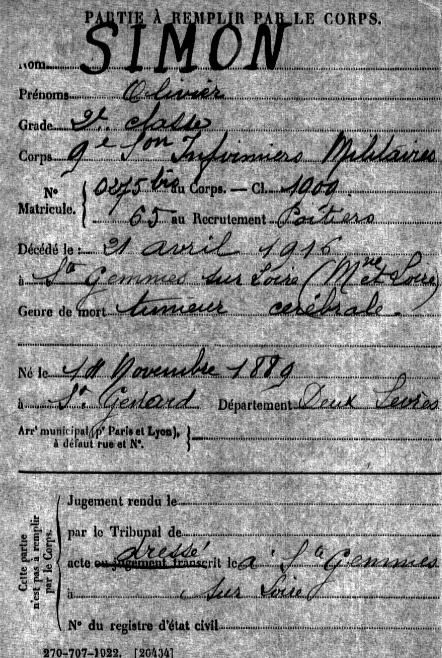 PARTIE À REMPLIR PAR LE CORPS.
Nom SIMON
Prénoms Olivier
Grade 2e classe
Corps 9e Son Infirmiers Militaires
No Matricule. { 0275 bis au Corps. — Cl. 1909
65 au Recrutement Poitiers
Décédé le : 21 avril 1916
à Ste Gemmes sur Loire (Mne et Loire)
Genre de mort tumeur cérébrale.
Né le Novembre 1889
à St Genard Département Deux Sevres
Arrt municipal (pr Paris et Lyon), à défaut rue et No. }
Cette partie n'est pas à remplir par le Corps.
Jugement rendu le
par le Tribunal de
acte ou jugement transcrit le dressé à Ste Gemmes
à sur Loire
No du registre d'état civil
270-707-1922. [20434]